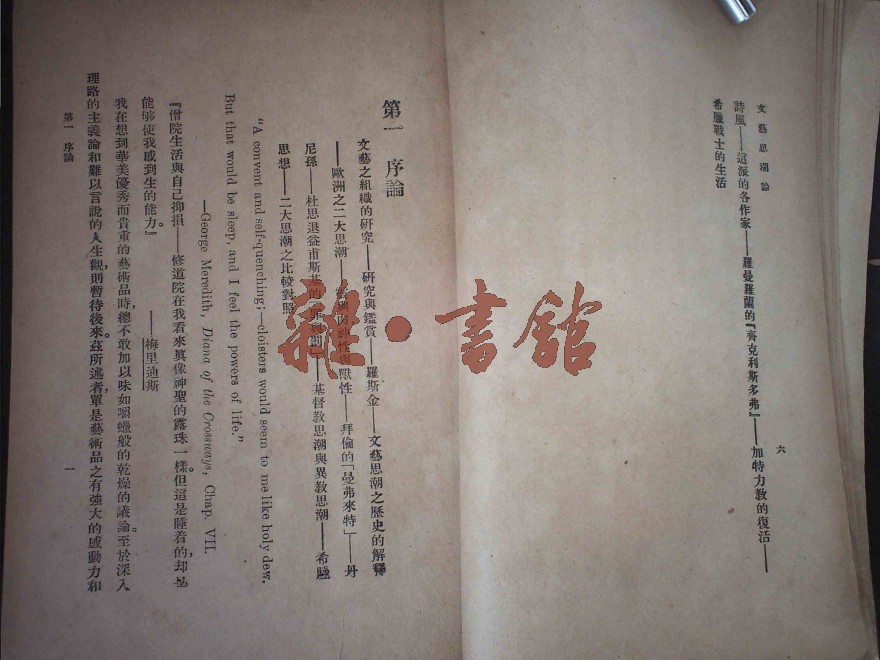 文藝思潮論
六
詩風——這派的各作家——羅曼羅蘭的『齊克利斯多弗』——加特力教的復活——
希臘戰士的生活
第一 序論
文藝之組織的研究——研究與鑑賞——羅斯金——文藝思潮之歷史的解釋
——歐洲之二大思潮——靈與肉神性與獸性——拜倫的「曼弗來特」——丹
尼孫——杜思退益甫斯基的——基督教思潮與異教思潮——希臘
思想——二大思潮之比較對照
“A convent and self-quenching;—cloisters would seem to me like holy dew.
But that would be sleep, and I feel the powers of life.”
—George Meredith, Diana of the Crossways, Chap. VII.
『僧院生活與自己抑損——修道院在我看來眞像神聖的露珠一樣。但這是睡着的,却
能够使我感到生的能力。』
——梅里迪斯
我在想到華美優秀而貴重的藝術品時,總不敢加以味如嚼蠟般的乾燥的議論。至於深入
理路的主義論和難以言說的人生觀,則暫待後來。茲所述者單是藝術品之有強大的感動力和
第一 序論
一
雜·書館